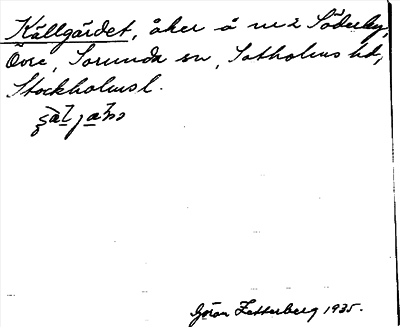 Källgärdet, åker å nr 2 Söderby,
Övre, Sorunda sn, Sotholms hd,
Stockholms l.
Göran Zetterberg 1935.